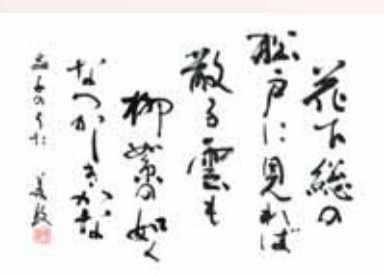 花下総の
松戸に見れば
散る雲も
柳絮の如く
なつかしきかな
晶子のうた